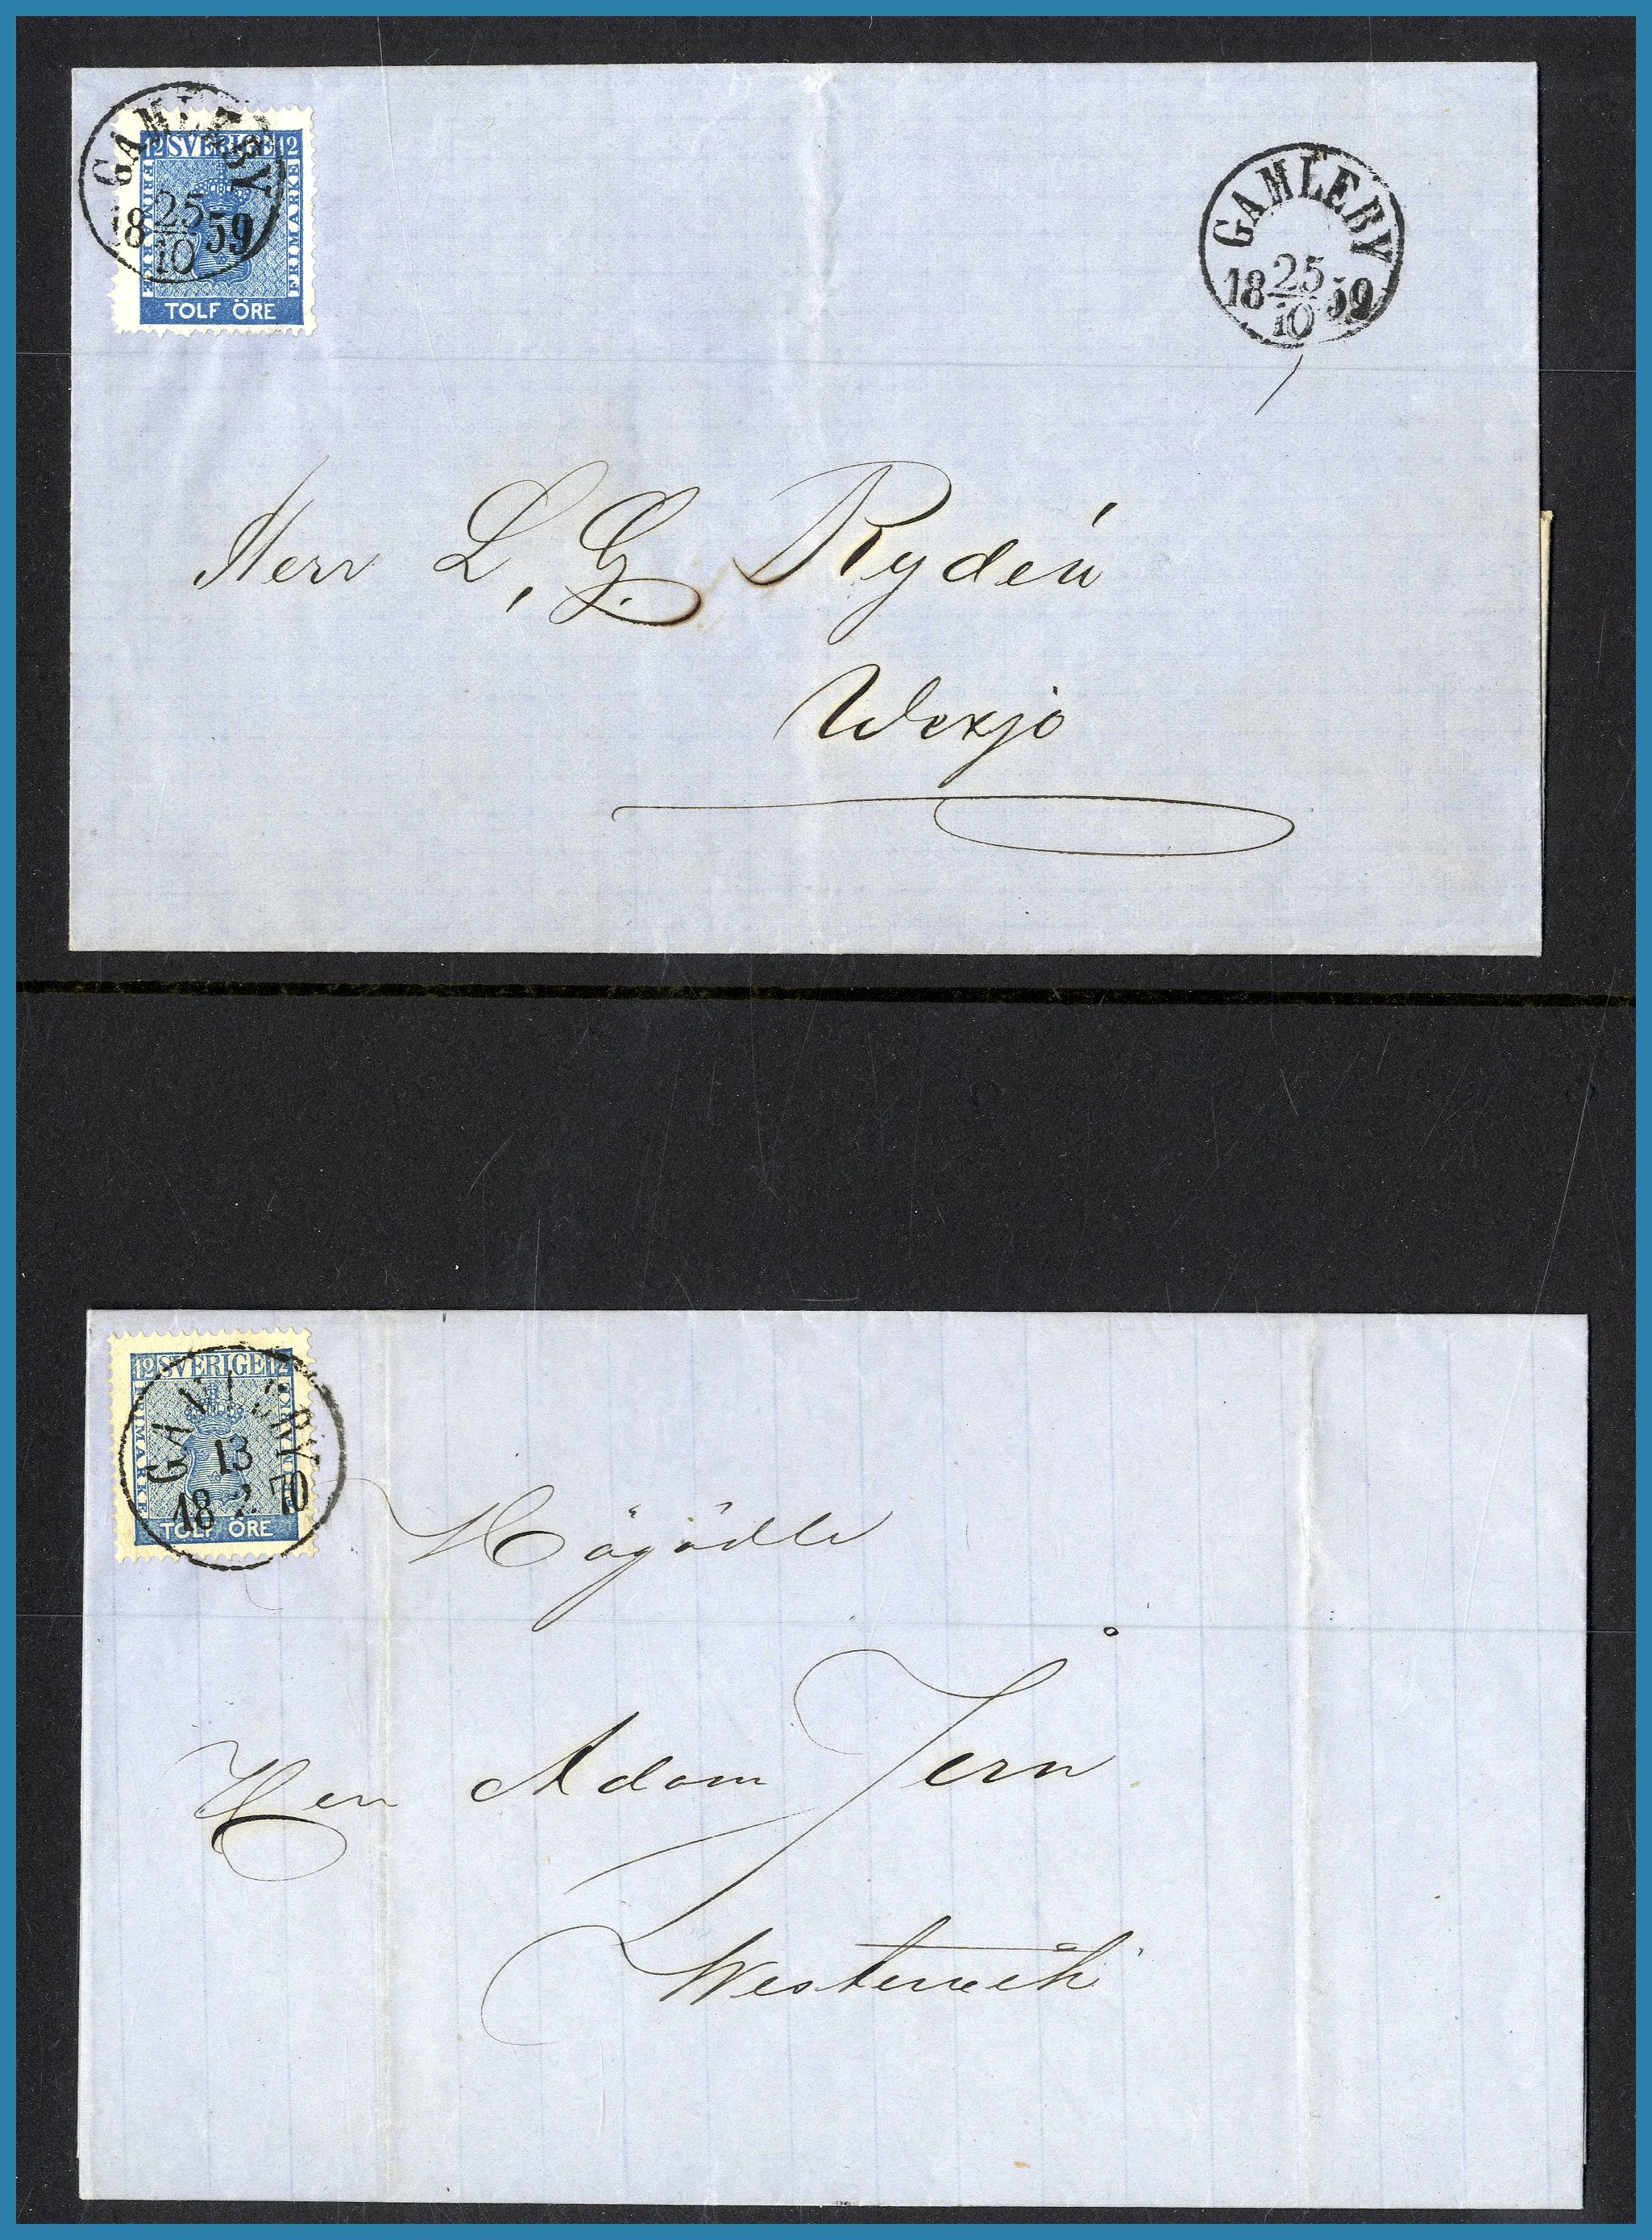 GAMLEBY
12 SVERIGE 12
FRIMARKE
FRIMARKE
25
18 59
10
TOLF ÖRE
GAMLEBY
25
18 59
10
Herr L. G. Rydén
Wexjö
12 SVERIGE 12
FRIMARKE
FRIMARKE
GAMLEBY
13
18 2 70
TOLF ÖRE
Högädle
Herr Adam Jern
Westerwik